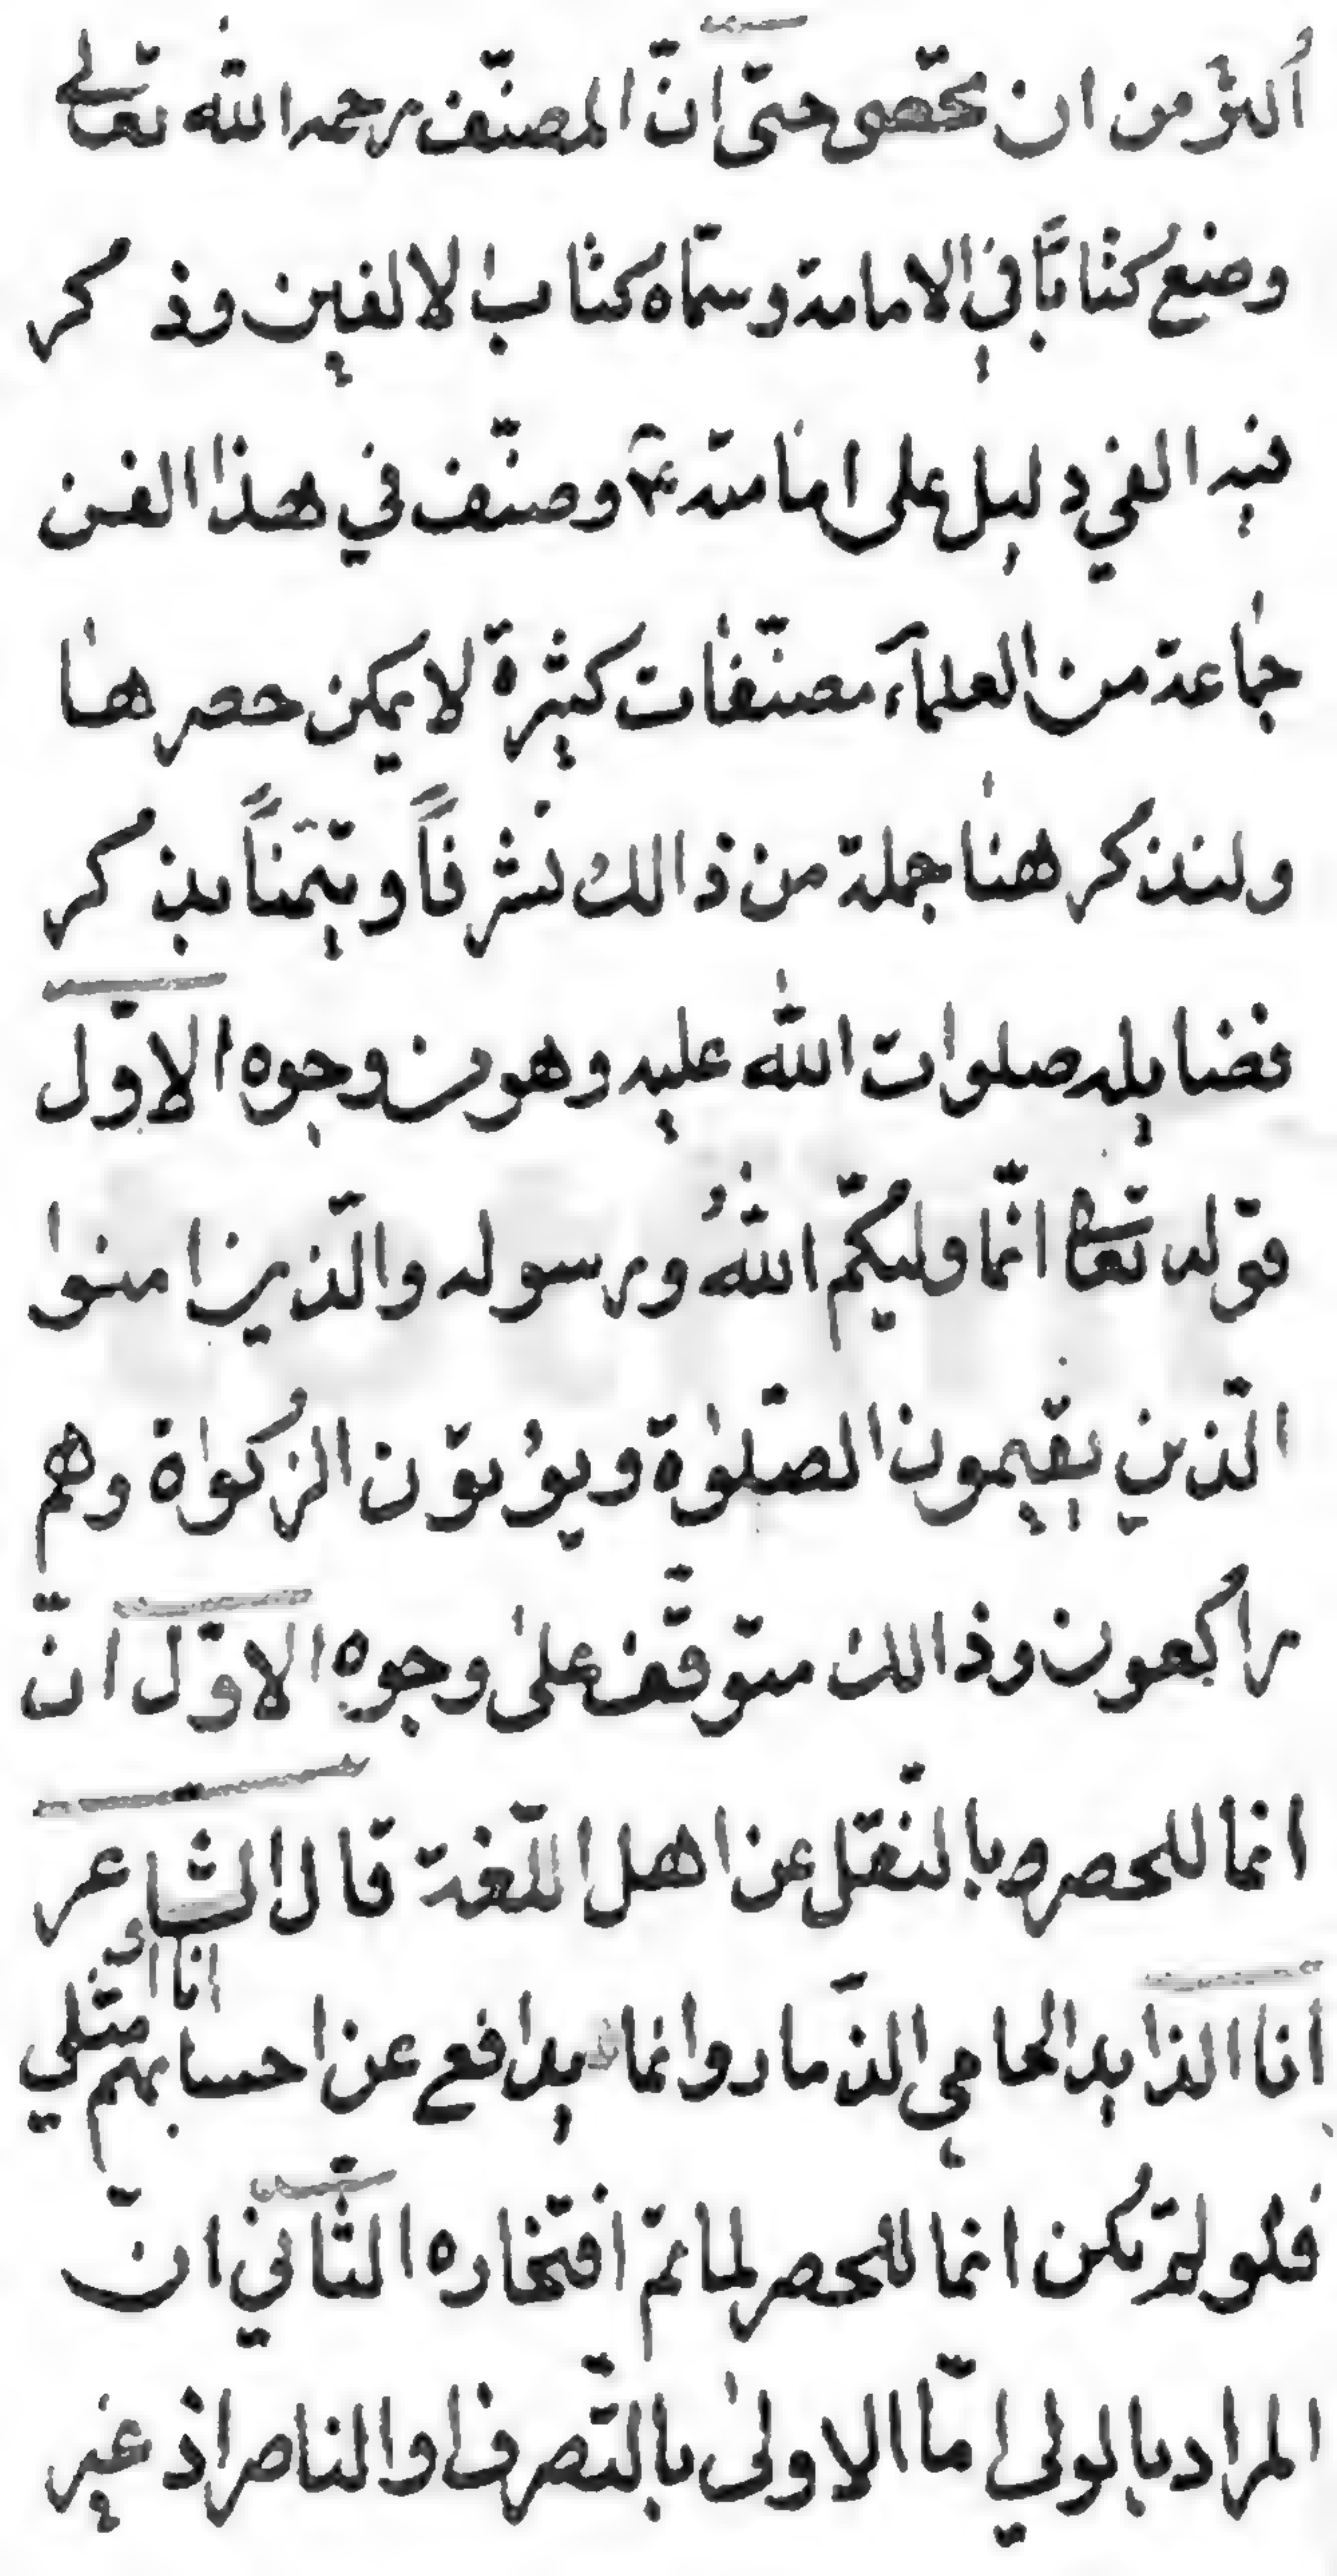 أكثر من ان تحصى حتى انّ المصنّف رحمه الله تعالى
وضع كتابًا في الامامة وسمّاه كتاب الالفين وذكر
فيه الفي دليل على امامته ع وصنّف في هذا الفن
جماعة من العلمآء مصنّفات كثيرة لا يمكن حصرها
ولنذكر هنا جملة من ذالك تشرفاً وتيمّناً بذكر
فضايله صلوات الله عليه وهو من وجوه الاوّل
قوله تعالى انّما وليكم اللهُ ورسوله والّذين امنوا
الّذين يقيمون الصّلوٰة ويؤتون الزكوٰة وهم
راكعون وذالك متوقّف على وجوه الاوّل انّ
انما للحصر وبالنّقل عن اهل اللّغة قال الشاعر
أنا الذايد الحامي الذّمار وانما يدافع عن احسابهم انا او مثلي
فلو لم تكن انما للحصر لما تمّ افتخاره الثّاني انّ
المراد بالولي امّا الاولىٰ بالتّصرف او الناصر اذ غير